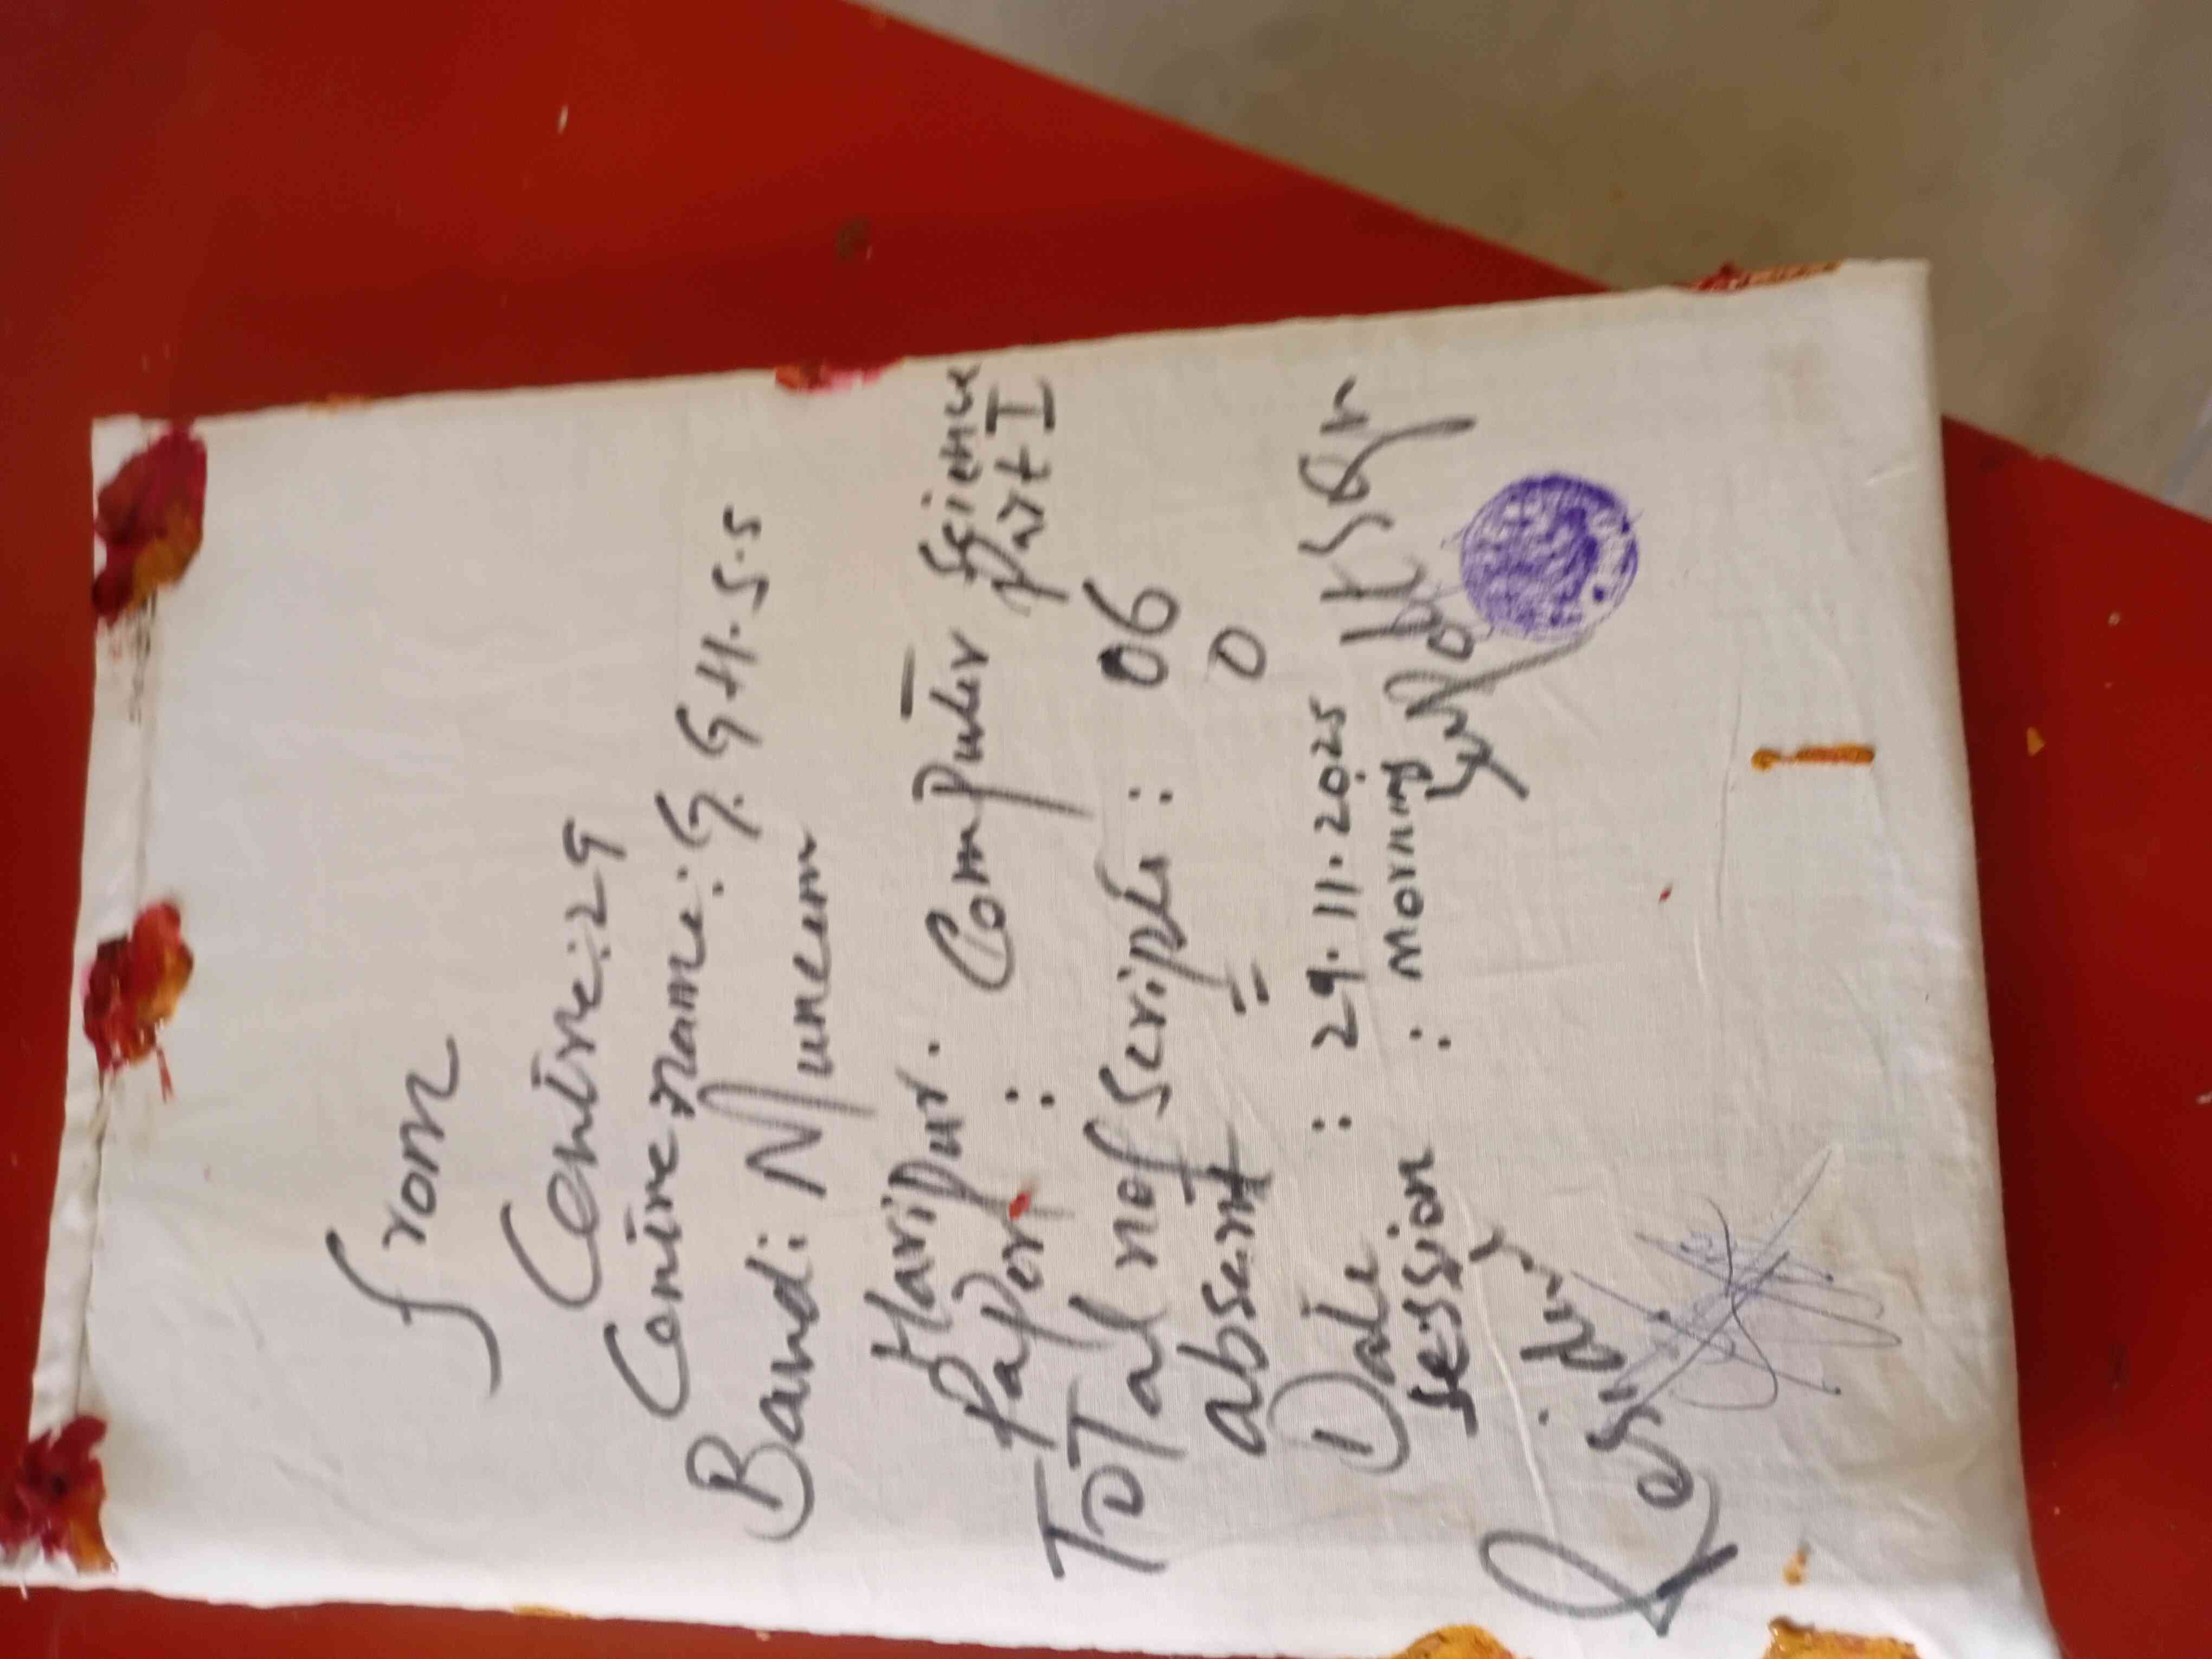 From
Centre:29
Centre name: G. G H. S. S
Band: Muneem
Haripur.
Paper : Computer Science
Part I
Total no of Scripts : 06
absent = 0
Date : 29.11.2025
session : morning